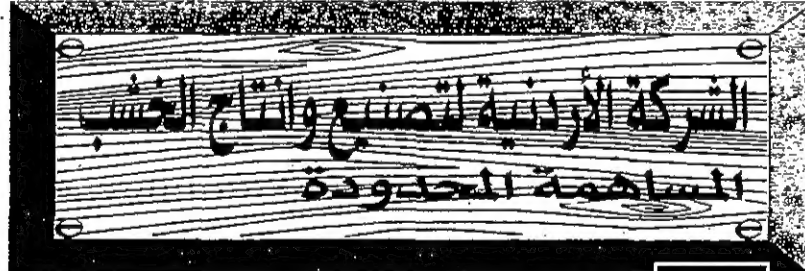 الشركة الأردنية لتصنيع وانتاج الخشب
المساهمة المحدودة